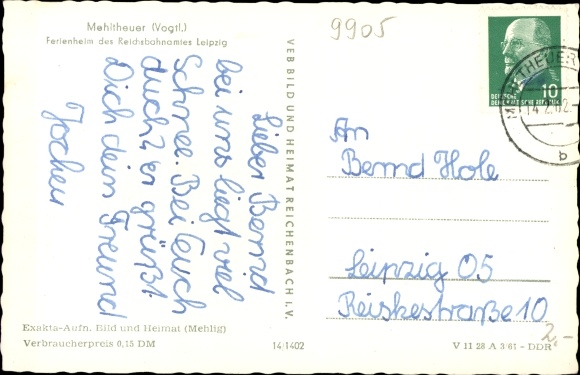 Mehltheuer (Vogtl.)
Ferienheim des Reichsbahnamtes Leipzig
Lieber Bernd
bei uns liegt viel
Schnee. Bei Euch
auch? er grüßt
Dich dein Freund
Jochen
Exakta-Aufn. Bild und Heimat (Mehlig)
Verbraucherpreis 0,15 DM
14/1402
VEB BILD UND HEIMAT REICHENBACH I. V.
9905
DEUTSCHE
DEMOKRATISCHE REPUBLIK
10
MEHLTHEUER
14.2.62
b
An
Bernd Hole
Leipzig 05
Reiskestraße 10
2,-
V 11 28 A 3/61 - DDR